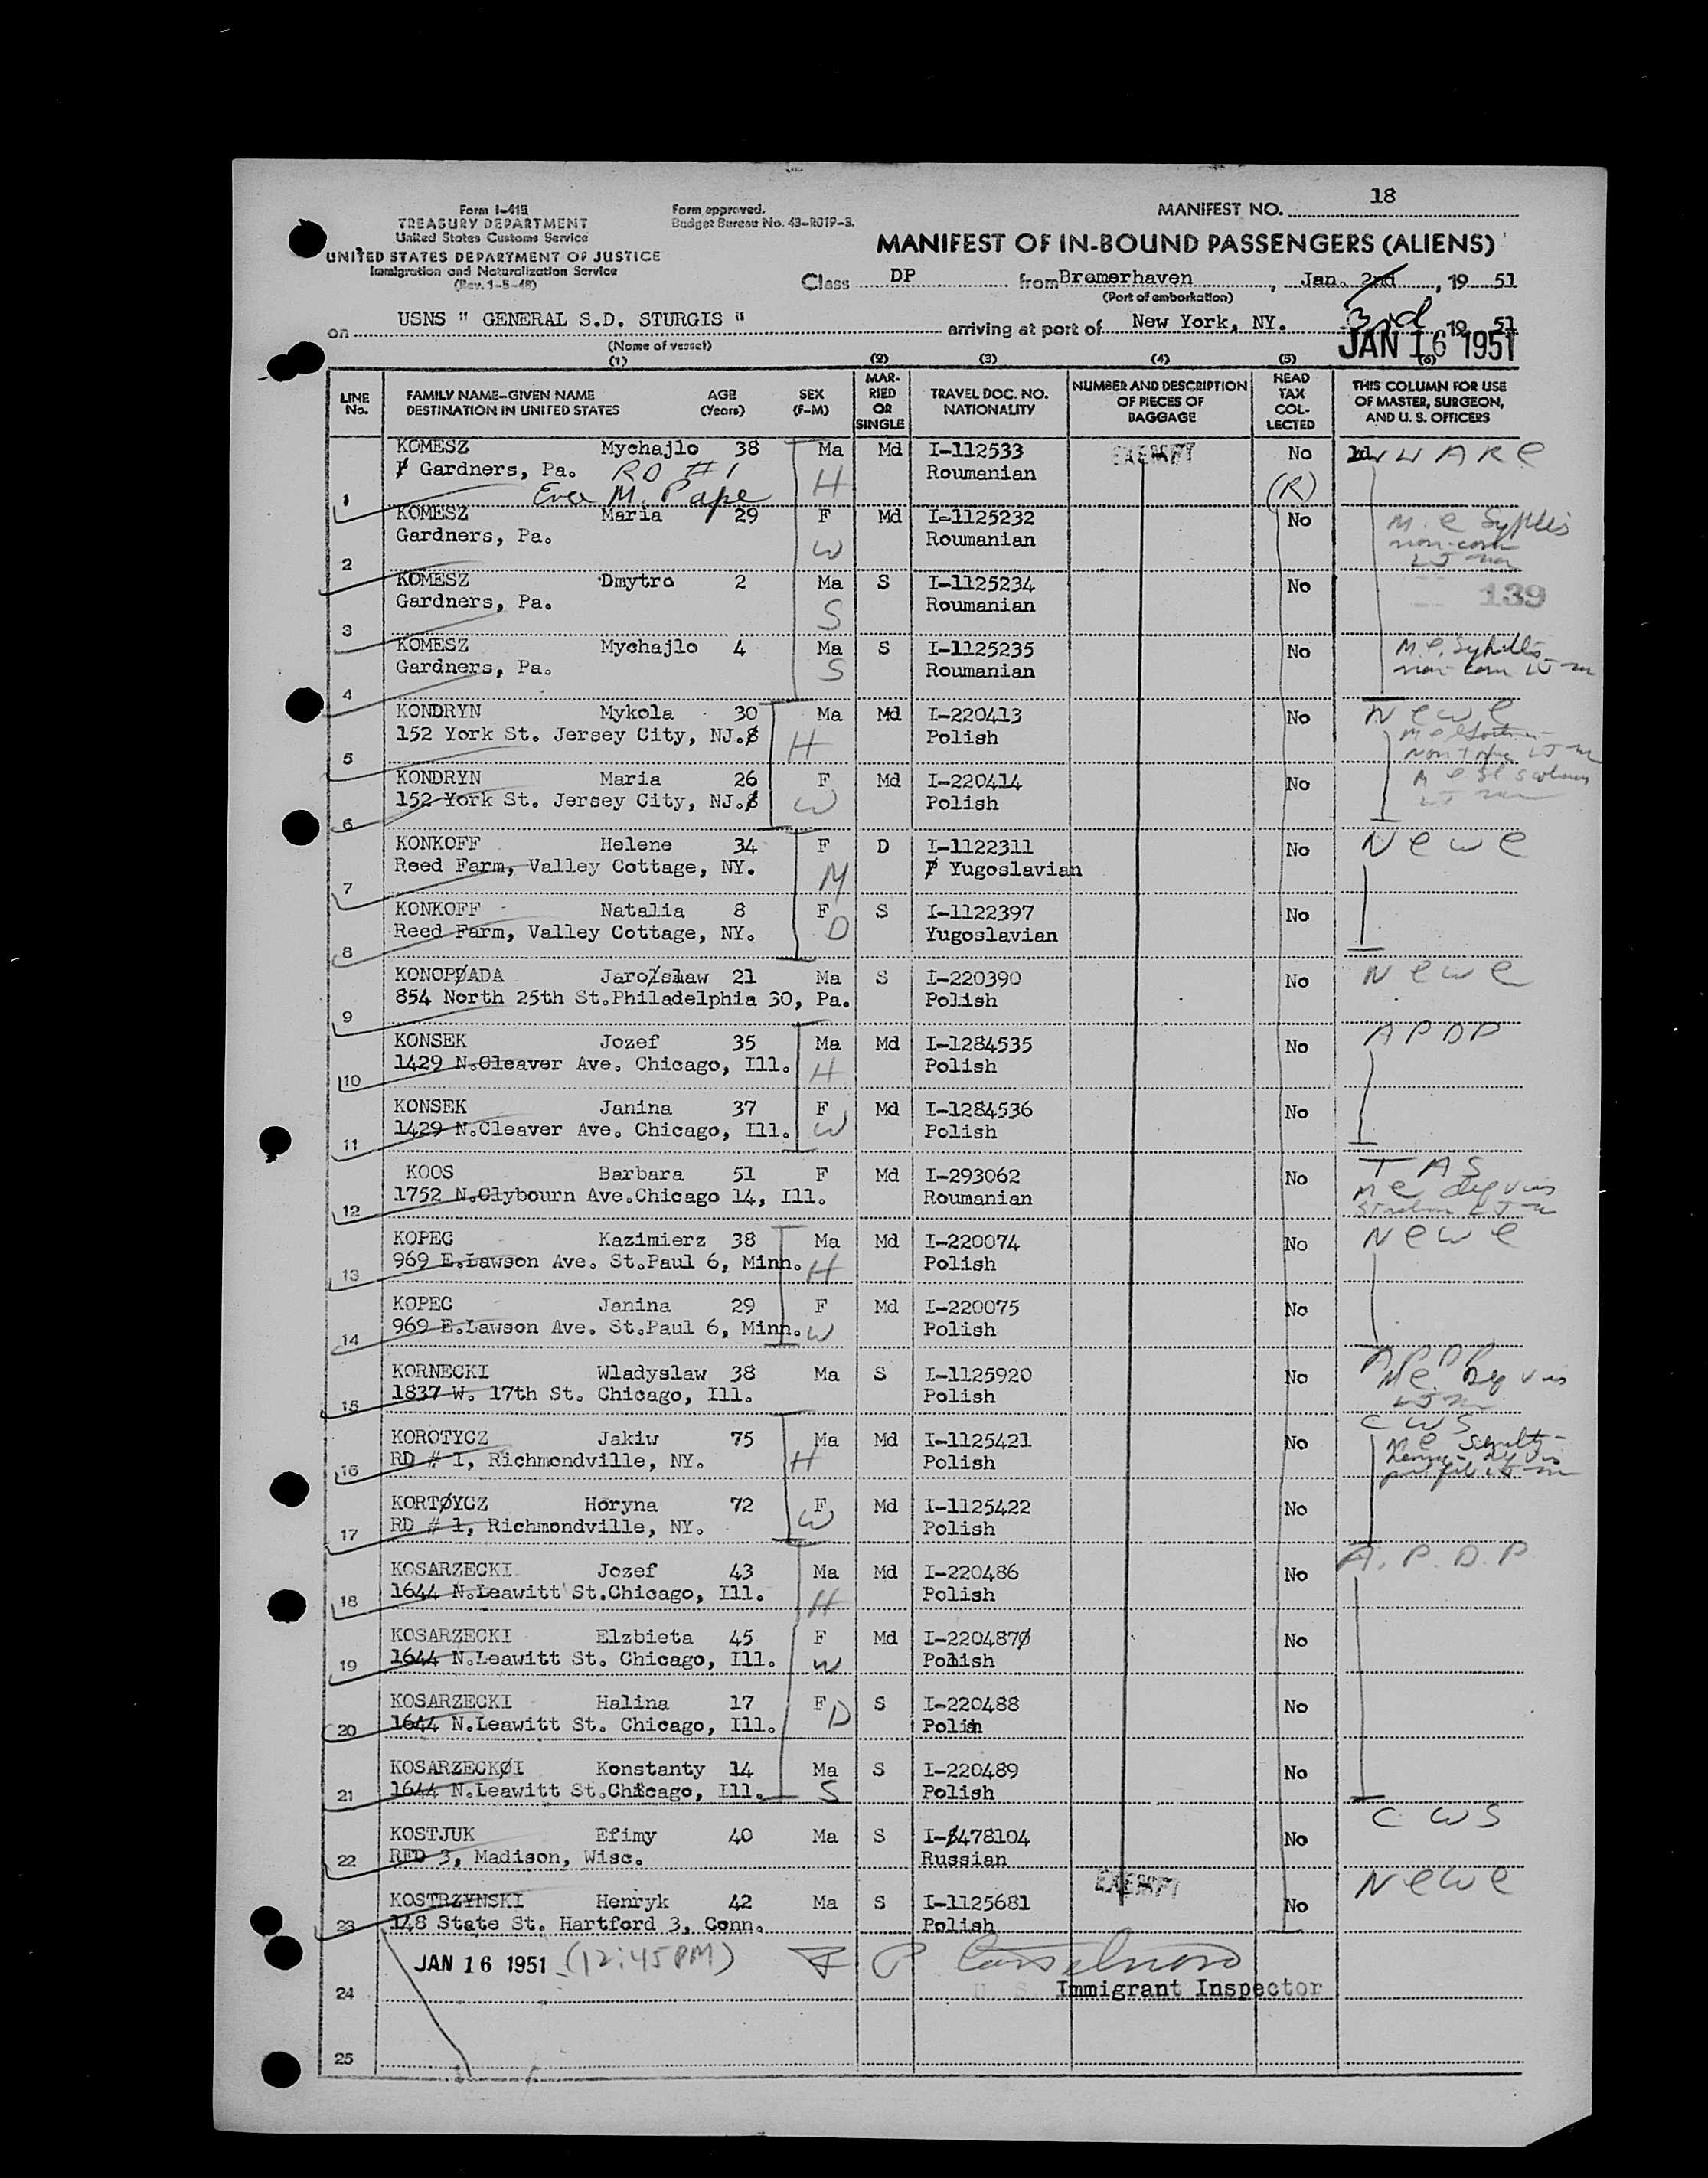 Form I-415
TREASURY DEPARTMENT
United States Customs Service
UNITED STATES DEPARTMENT OF JUSTICE
Immigration and Naturalization Service
(Rev. 1-5-48)
Form approved.
Budget Bureau No. 43-R019-3.
MANIFEST NO. 18
MANIFEST OF IN-BOUND PASSENGERS (ALIENS)
Class DP from Bremerhaven, Jan. 2nd, 19 51
(Port of embarkation)
on USNS " GENERAL S.D. STURGIS " arriving at port of New York, NY. 3rd 19 51
(Name of vessel)
JAN 16 1951
(1) (2) (3) (4) (5) (6)
LINE No. FAMILY NAME-GIVEN NAME DESTINATION IN UNITED STATES AGE (Years) SEX (F-M) MARRIED OR SINGLE TRAVEL DOC. NO. NATIONALITY NUMBER AND DESCRIPTION OF PIECES OF BAGGAGE HEAD TAX COLLECTED THIS COLUMN FOR USE OF MASTER, SURGEON, AND U. S. OFFICERS
KOMESZ Mychajlo 38 Ma Md I-112533 EXEMPT No
Gardners, Pa. RD #1 H Roumanian (R)
1 Eva M. Pape
KOMESZ Maria 29 F Md I-1125232 No
Gardners, Pa. W Roumanian
2
KOMESZ Dmytro 2 Ma S I-1125234 No
Gardners, Pa. S Roumanian 139
3
KOMESZ Mychajlo 4 Ma S I-1125235 No
Gardners, Pa. S Roumanian
4
KONDRYN Mykola 30 Ma Md I-220413 No NCWC
152 York St. Jersey City, NJ. H Polish
5
KONDRYN Maria 26 F Md I-220414 No
152 York St. Jersey City, NJ. W Polish
6
KONKOFF Helene 34 F D I-1122311 No NCWC
Reed Farm, Valley Cottage, NY. M Yugoslavian
7
KONKOFF Natalia 8 F S I-1122397 No
Reed Farm, Valley Cottage, NY. D Yugoslavian
8
KONOPADA Jaroslaw 21 Ma S I-220390 No NCWC
854 North 25th St.Philadelphia 30, Pa. Polish
9
KONSEK Jozef 35 Ma Md I-1284535 No APDP
1429 N.Cleaver Ave. Chicago, Ill. H Polish
10
KONSEK Janina 37 F Md I-1284536 No
1429 N.Cleaver Ave. Chicago, Ill. W Polish
11
KOOS Barbara 51 F Md I-293062 No
1752 N.Clybourn Ave.Chicago 14, Ill. Roumanian
12
KOPEC Kazimierz 38 Ma Md I-220074 No NCWC
969 E.Lawson Ave. St.Paul 6, Minn. H Polish
13
KOPEC Janina 29 F Md I-220075 No
969 E.Lawson Ave. St.Paul 6, Minn. W Polish
14
KORNECKI Wladyslaw 38 Ma S I-1125920 No APDP
1837 W. 17th St. Chicago, Ill. Polish
15
KOROTYCZ Jakiw 75 Ma Md I-1125421 No CWS
RD # 1, Richmondville, NY. H Polish
16
KORTYCZ Horyna 72 F Md I-1125422 No
RD # 1, Richmondville, NY. W Polish
17
KOSARZECKI Jozef 43 Ma Md I-220486 No A.P.D.P
1644 N.Leawitt St.Chicago, Ill. H Polish
18
KOSARZECKI Elzbieta 45 F Md I-220487 No
1644 N.Leawitt St. Chicago, Ill. W Polish
19
KOSARZECKI Halina 17 F S I-220488 No
1644 N.Leawitt St. Chicago, Ill. D Polish
20
KOSARZECKI Konstanty 14 Ma S I-220489 No
1644 N.Leawitt St.Chicago, Ill. S Polish
21
KOSTJUK Efimy 40 Ma S I-478104 No CWS
RFD 3, Madison, Wisc. Russian
22
KOSTRZYNSKI Henryk 42 Ma S I-1125681 EXEMPT No NCWC
148 State St. Hartford 3, Conn. Polish
23
JAN 16 1951 (12:45 PM)
U. S. Immigrant Inspector
24
25